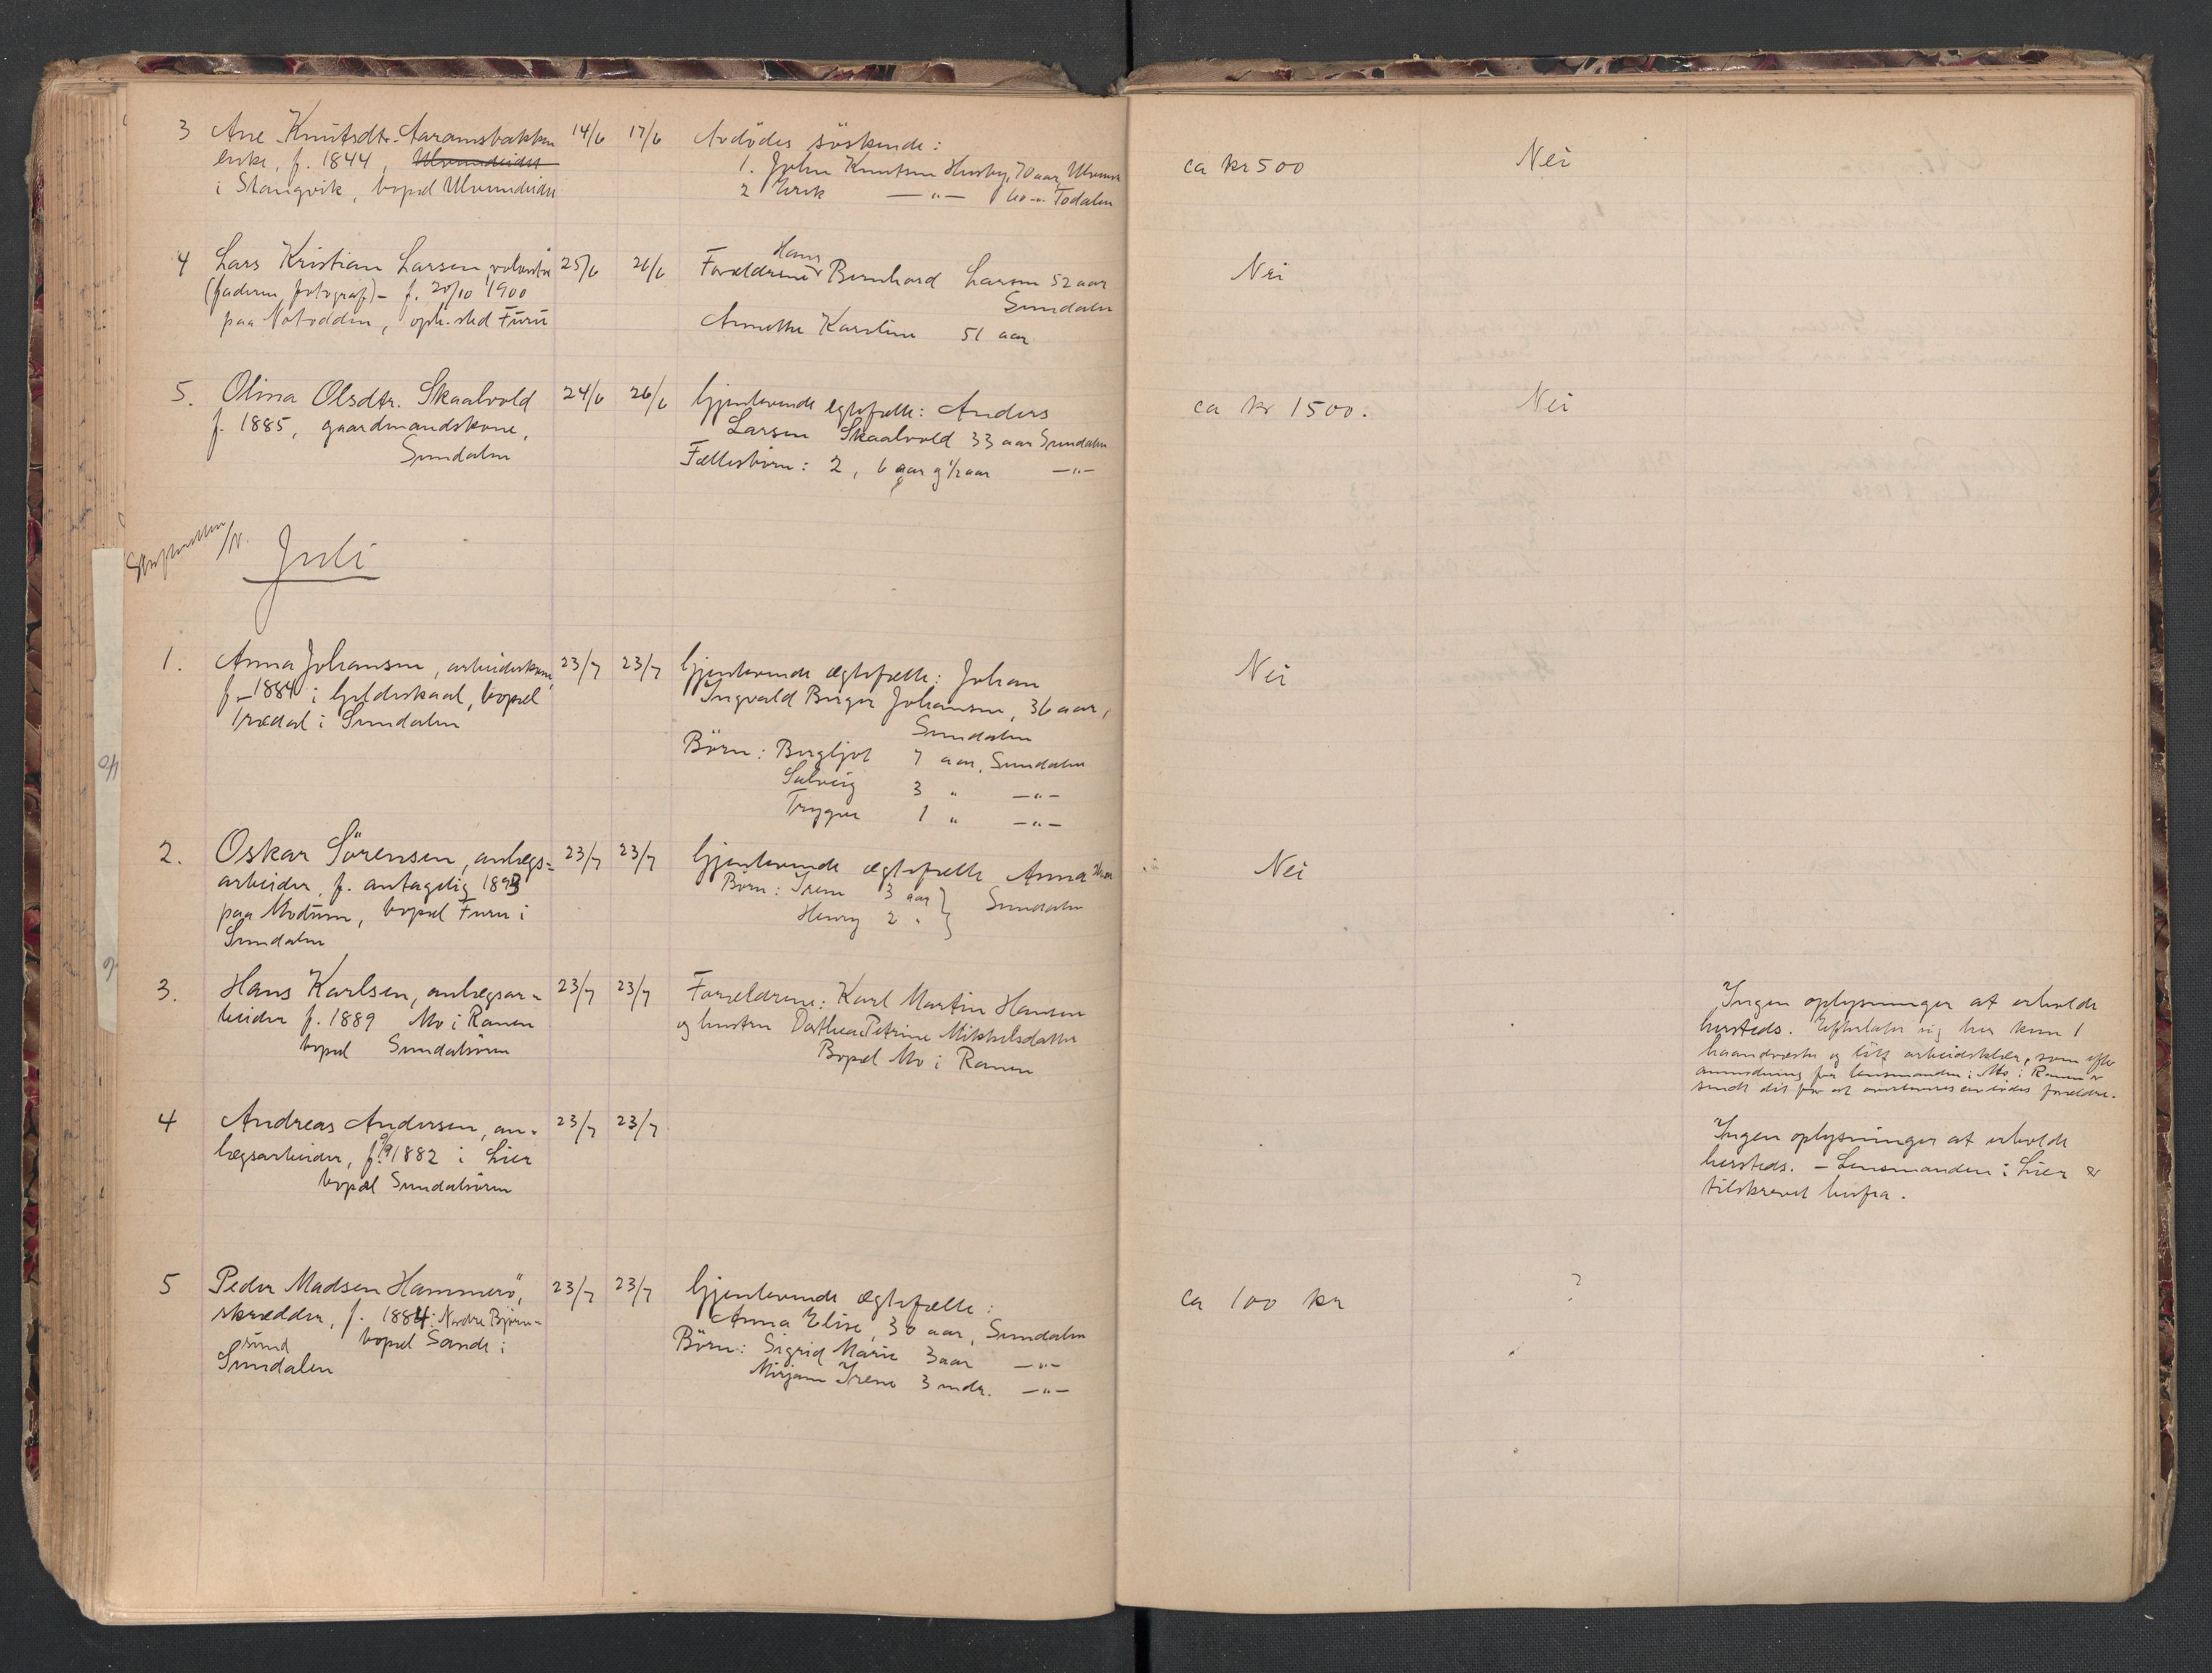 3 Ane Knutsdtr. Aaramsbakken 14/6 17/6 Avdödes söskende: ca kr 500 Nei
enke, f. 1844, Ulvundeidet 1. John Knutsen Husby, 70 aar, Ulvund
i Stangvik, bopæl Ulvundeidet 2 Erik —„— 60 —„— Todalen
4 Lars Kristian Larsen, volontør 25/6 26/6 Forældrene Hans Bernhard Larsen 52 aar Nei
(faderen fotograf) – f. 20/10 1900 Sundalen
paa Notodden, oph. sted Furu Annette Karoline 51 aar
5. Olina Olsdtr. Skaalvold 24/6 26/6 Gjenlevende egtefælle: Anders ca kr 1500. Nei
f. 1885, gaardmandskone, Larsen Skaalvold 33 aar Sundalen
Sundalen Fællesbörn: 2, 6 aar og 1/2 aar —„—
Juli
1. Anna Johansen, arbeiderkone, 23/7 23/7 Gjenlevende ægtefælle: Johan Nei
f. – 1884 i Gildeskaal, bopæl Ingvald Birger Johansen, 36 aar,
Trædal i Sundalen Sundalen
Börn: Bergljot 7 aar, Sundalen
Solveig 3 „ —„—
Trygve 1 „ —„—
2. Oskar Sörensen, anlægs= 23/7 23/7 Gjenlevende ægtefælle Anna Nei
arbeider, f. antagelig 1893 Börn: Irene 3 aar } Sundalen
paa Modum, bopæl Furu i Henry 2 „
Sundalen
3. Hans Karlsen, anlægsar= 23/7 23/7 Forældrene: Karl Martin Hansen Ingen oplysninger at erholde
beider f. 1889 Mo i Ranen og hustru Dorthea Petrine Mikkelsdatter hersteds. Efterlater sig her kun 1
bopæl Sundalsören Bopæl Mo i Ranen haandvæske og litt arbeidsklær, som efter
anmodning fra lensmanden i Mo i Ranen er
sendt dit for at overleveres avdödes forældre.
4 Andreas Andersen, an= 23/7 23/7 Ingen oplysninger at erholde
lægsarbeider, f. 1882 i Lier hersteds. – Lensmanden i Lier er
bopæl Sundalsören tilskrevet herfra.
5 Peder Madsen Hammerö, 23/7 23/7 Gjenlevende ægtefælle: ca 100 kr ?
skrædder, f. 1884 i Nordre Björn= Anna Elise, 30 aar, Sundalen
sund bopæl Sande i Börn: Sigrid Marie 3 aar —„—
Sundalen Mirjam Irene 3 mdr. —„—